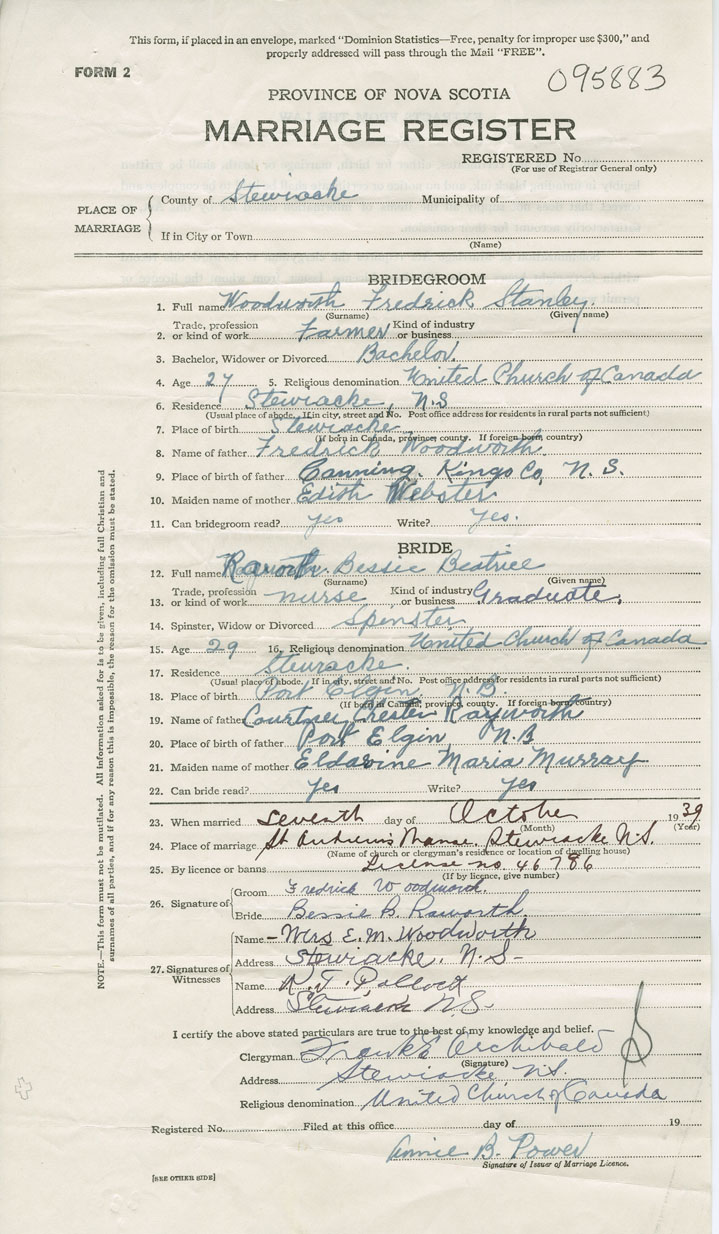 This form, if placed in an envelope, marked "Dominion Statistics—Free, penalty for improper use $300," and
properly addressed will pass through the Mail "FREE".
FORM 2
095883
PROVINCE OF NOVA SCOTIA
MARRIAGE REGISTER
REGISTERED No.
(For use of Registrar General only)
PLACE OF MARRIAGE
County of Stewiacke Municipality of
If in City or Town
(Name)
BRIDEGROOM
1. Full name Woodworth Fredrick Stanley.
(Surname) (Given name)
2. Trade, profession or kind of work Farmer Kind of industry or business
3. Bachelor, Widower or Divorced Bachelor.
4. Age 27 5. Religious denomination United Church of Canada
6. Residence Stewiacke, N.S
(Usual place of abode. If in city, street and No. Post office address for residents in rural parts not sufficient)
7. Place of birth Stewiacke
(If born in Canada, province, county. If foreign born, country)
8. Name of father Fredrick Woodworth
9. Place of birth of father Canning, Kings Co, N.S.
10. Maiden name of mother Edith Webster
11. Can bridegroom read? yes Write? yes.
BRIDE
12. Full name Raworth. Bessie Beatrice
(Surname) (Given name)
13. Trade, profession or kind of work nurse Kind of industry or business Graduate.
14. Spinster, Widow or Divorced Spinster
15. Age 29 16. Religious denomination United Church of Canada
17. Residence Stewiacke.
(Usual place of abode. If in city, street and No. Post office address for residents in rural parts not sufficient)
18. Place of birth Port Elgin, N.B.
(If born in Canada, province, county. If foreign born, country)
19. Name of father Chester Rayworth
20. Place of birth of father Port Elgin N.B
21. Maiden name of mother Maria Murray
22. Can bride read? yes Write? yes
23. When married seventh day of October 1939
(Month) (Year)
24. Place of marriage St Andrew's Manse, Stewiacke N.S.
(Name of church or clergyman's residence or location of dwelling house)
25. By licence or banns License no. 46786
(If by licence, give number)
26. Signature of
Groom Fredrick Woodworth.
Bride Bessie B. Raworth.
27. Signatures of Witnesses
Name - Mrs E. M. Woodworth
Address Stewiacke, N.S-
Name Pollock
Address Stewiacke N.S.
I certify the above stated particulars are true to the best of my knowledge and belief.
Clergyman Frank E Archibald
(Signature)
Address Stewiacke N.S.
Religious denomination United Church of Canada
Registered No. Filed at this office day of 19
Annie B. Power
Signature of Issuer of Marriage Licence.
[SEE OTHER SIDE]
NOTE.—This form must not be mutilated. All information asked for is to be given, including full Christian and
surnames of all parties, and if for any reason this is impossible, the reason for the omission must be stated.